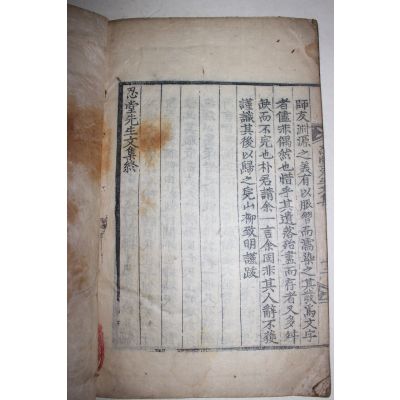 師友淵源之美有以服習而濡染之其發爲文字
者儘非偶然也惜乎其遺落殆盡而存者又多舛
缺而不完也朴君請余一言余固非其人辭不獲
謹識其後以歸之完山柳致明謹跋
忍堂先生文集終